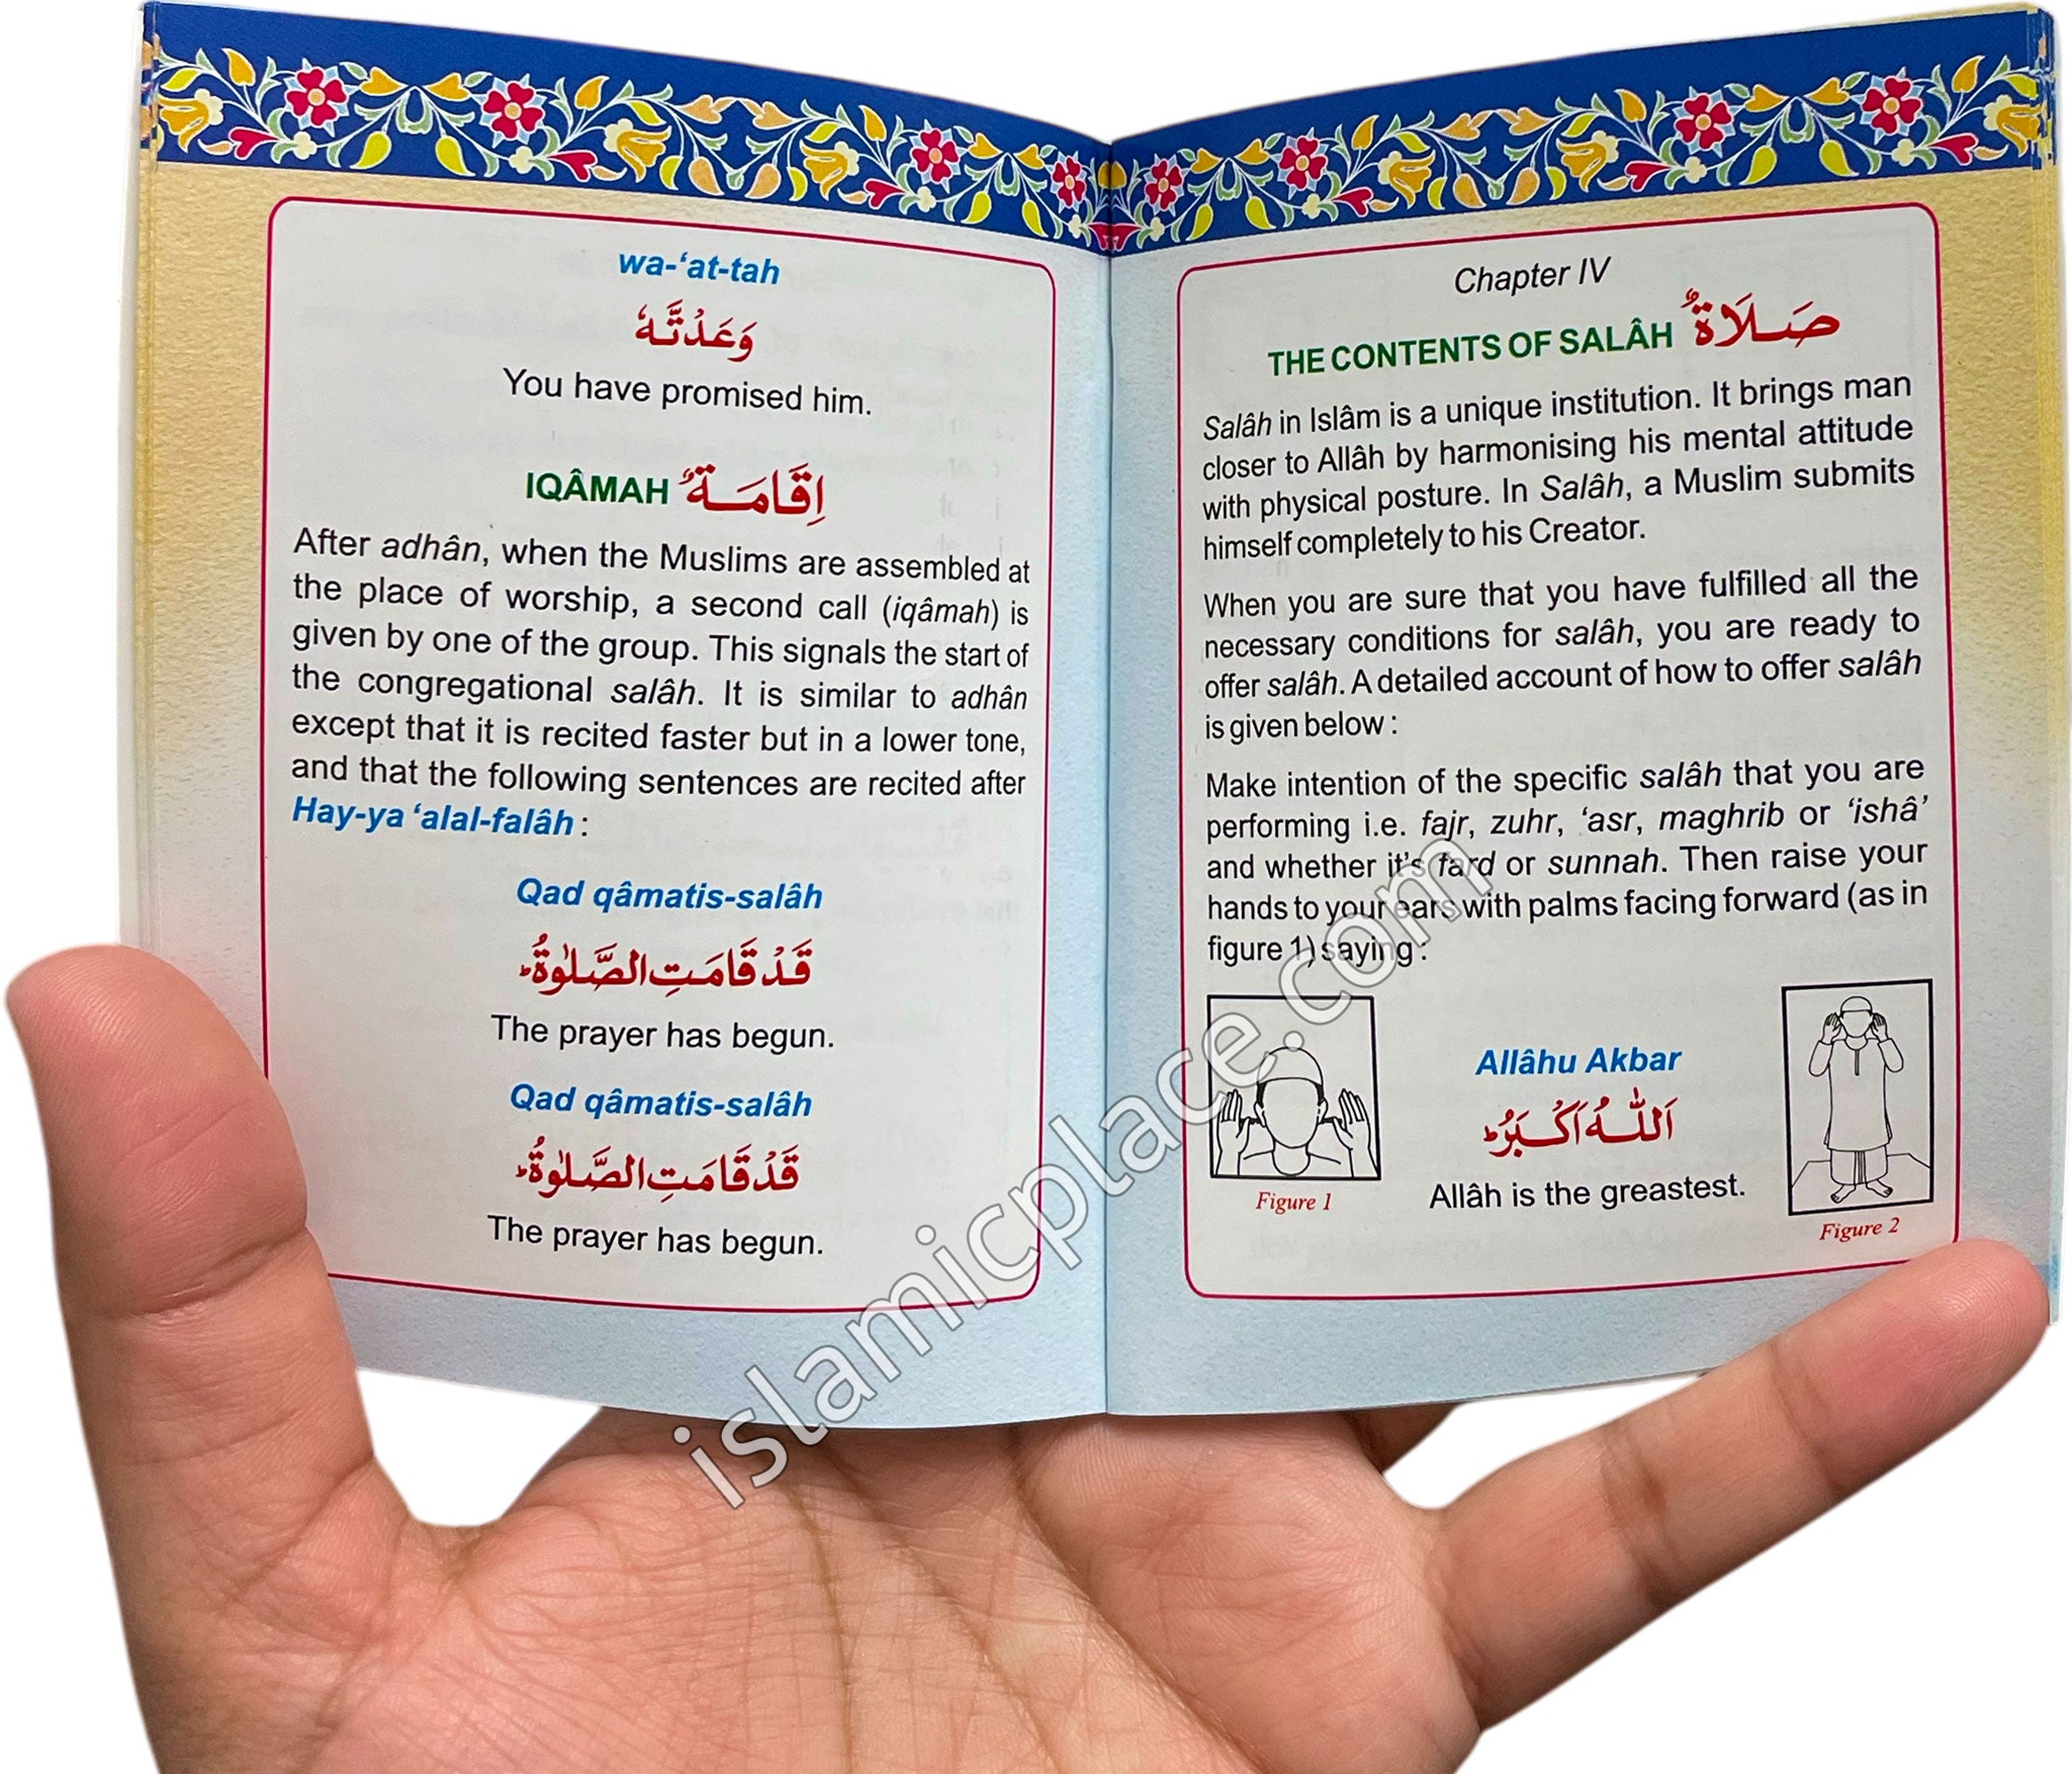 wa-‘at-tah
وَعَدْتَّهٗ
You have promised him.
IQÂMAH اِقَامَةٌ
After adhân, when the Muslims are assembled at
the place of worship, a second call (iqâmah) is
given by one of the group. This signals the start of
the congregational salâh. It is similar to adhân
except that it is recited faster but in a lower tone,
and that the following sentences are recited after
Hay-ya ‘alal-falâh :
Qad qâmatis-salâh
قَدْ قَامَتِ الصَّلٰوةُ ؕ
The prayer has begun.
Qad qâmatis-salâh
قَدْ قَامَتِ الصَّلٰوةُ ؕ
The prayer has begun.
Chapter IV
THE CONTENTS OF SALÂH صَلَاةٌ
Salâh in Islâm is a unique institution. It brings man
closer to Allâh by harmonising his mental attitude
with physical posture. In Salâh, a Muslim submits
himself completely to his Creator.
When you are sure that you have fulfilled all the
necessary conditions for salâh, you are ready to
offer salâh. A detailed account of how to offer salâh
is given below :
Make intention of the specific salâh that you are
performing i.e. fajr, zuhr, ‘asr, maghrib or ‘ishâ’
and whether it’s fard or sunnah. Then raise your
hands to your ears with palms facing forward (as in
figure 1) saying :
Allâhu Akbar
اَللّٰهُ اَكْبَرُ ؕ
Allâh is the greastest.
Figure 1
Figure 2
islamicplace.com